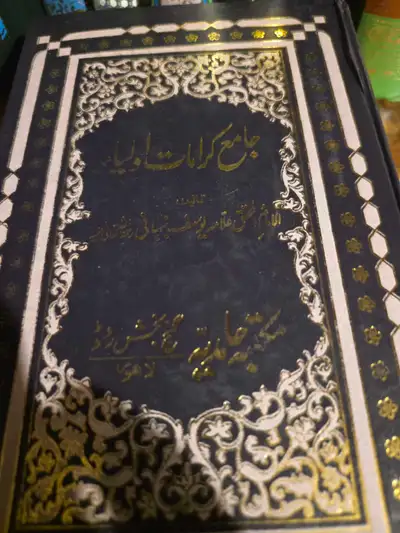 جامع کرامات اولیاء
تالیف
علامہ یوسف نبہانی
مکتبہ حامدیہ گنج بخش روڈ
لاہور